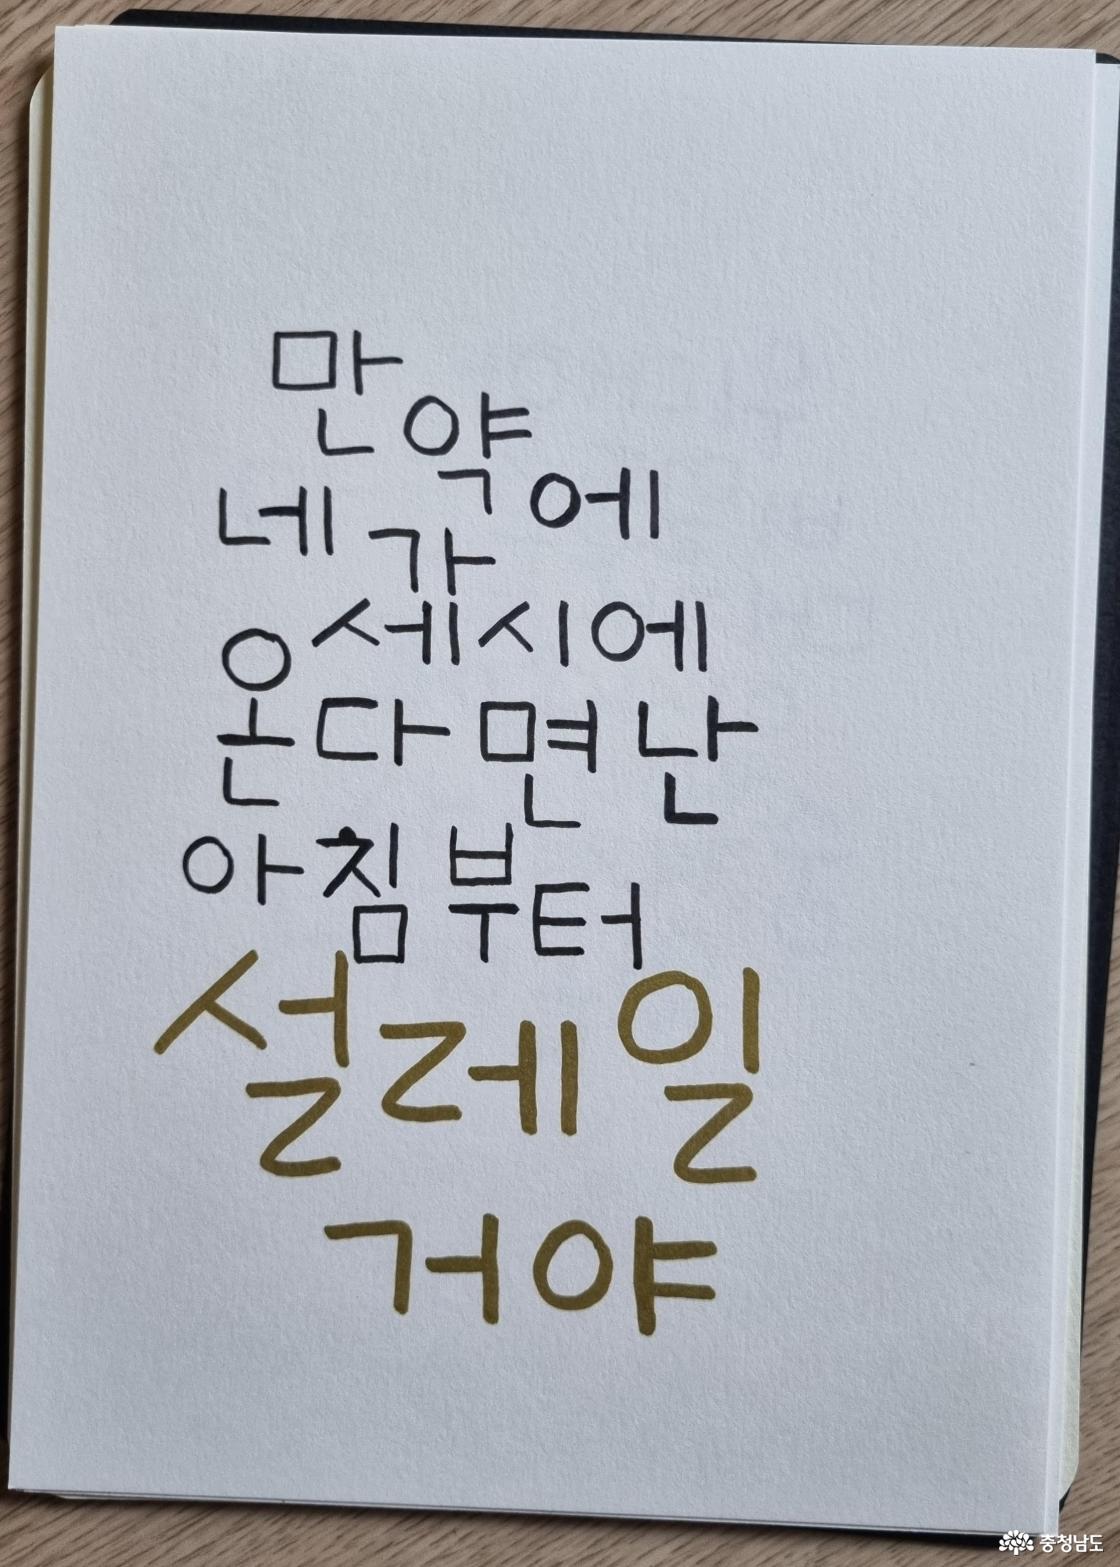 만약에
네가
세시에
온다면 난
아침부터
설레일
거야
충청남도